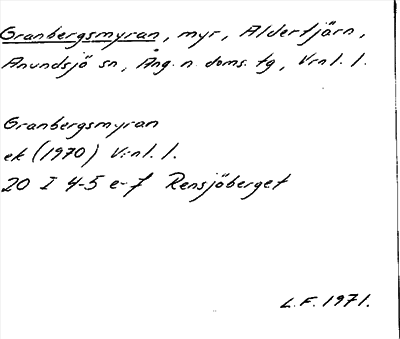 Granbergsmyran, myr, Aldertjärn,
Anundsjö sn, Ång. n. doms. tg, Vrnl. l.
Granbergsmyran
ek (1970) Vrnl. l.
20 I 4-5 e-f Rensjöberget
L.F. 1971.